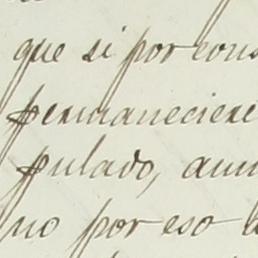 que si por cons
permaneciere
pulado, aun
no por eso